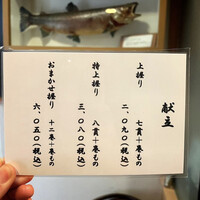 献立
上握り
七貫＋巻もの
二、〇九〇（税込）
特上握り
八貫＋巻もの
三、〇八〇（税込）
おまかせ握り
十二巻＋巻もの
六、〇五〇（税込）